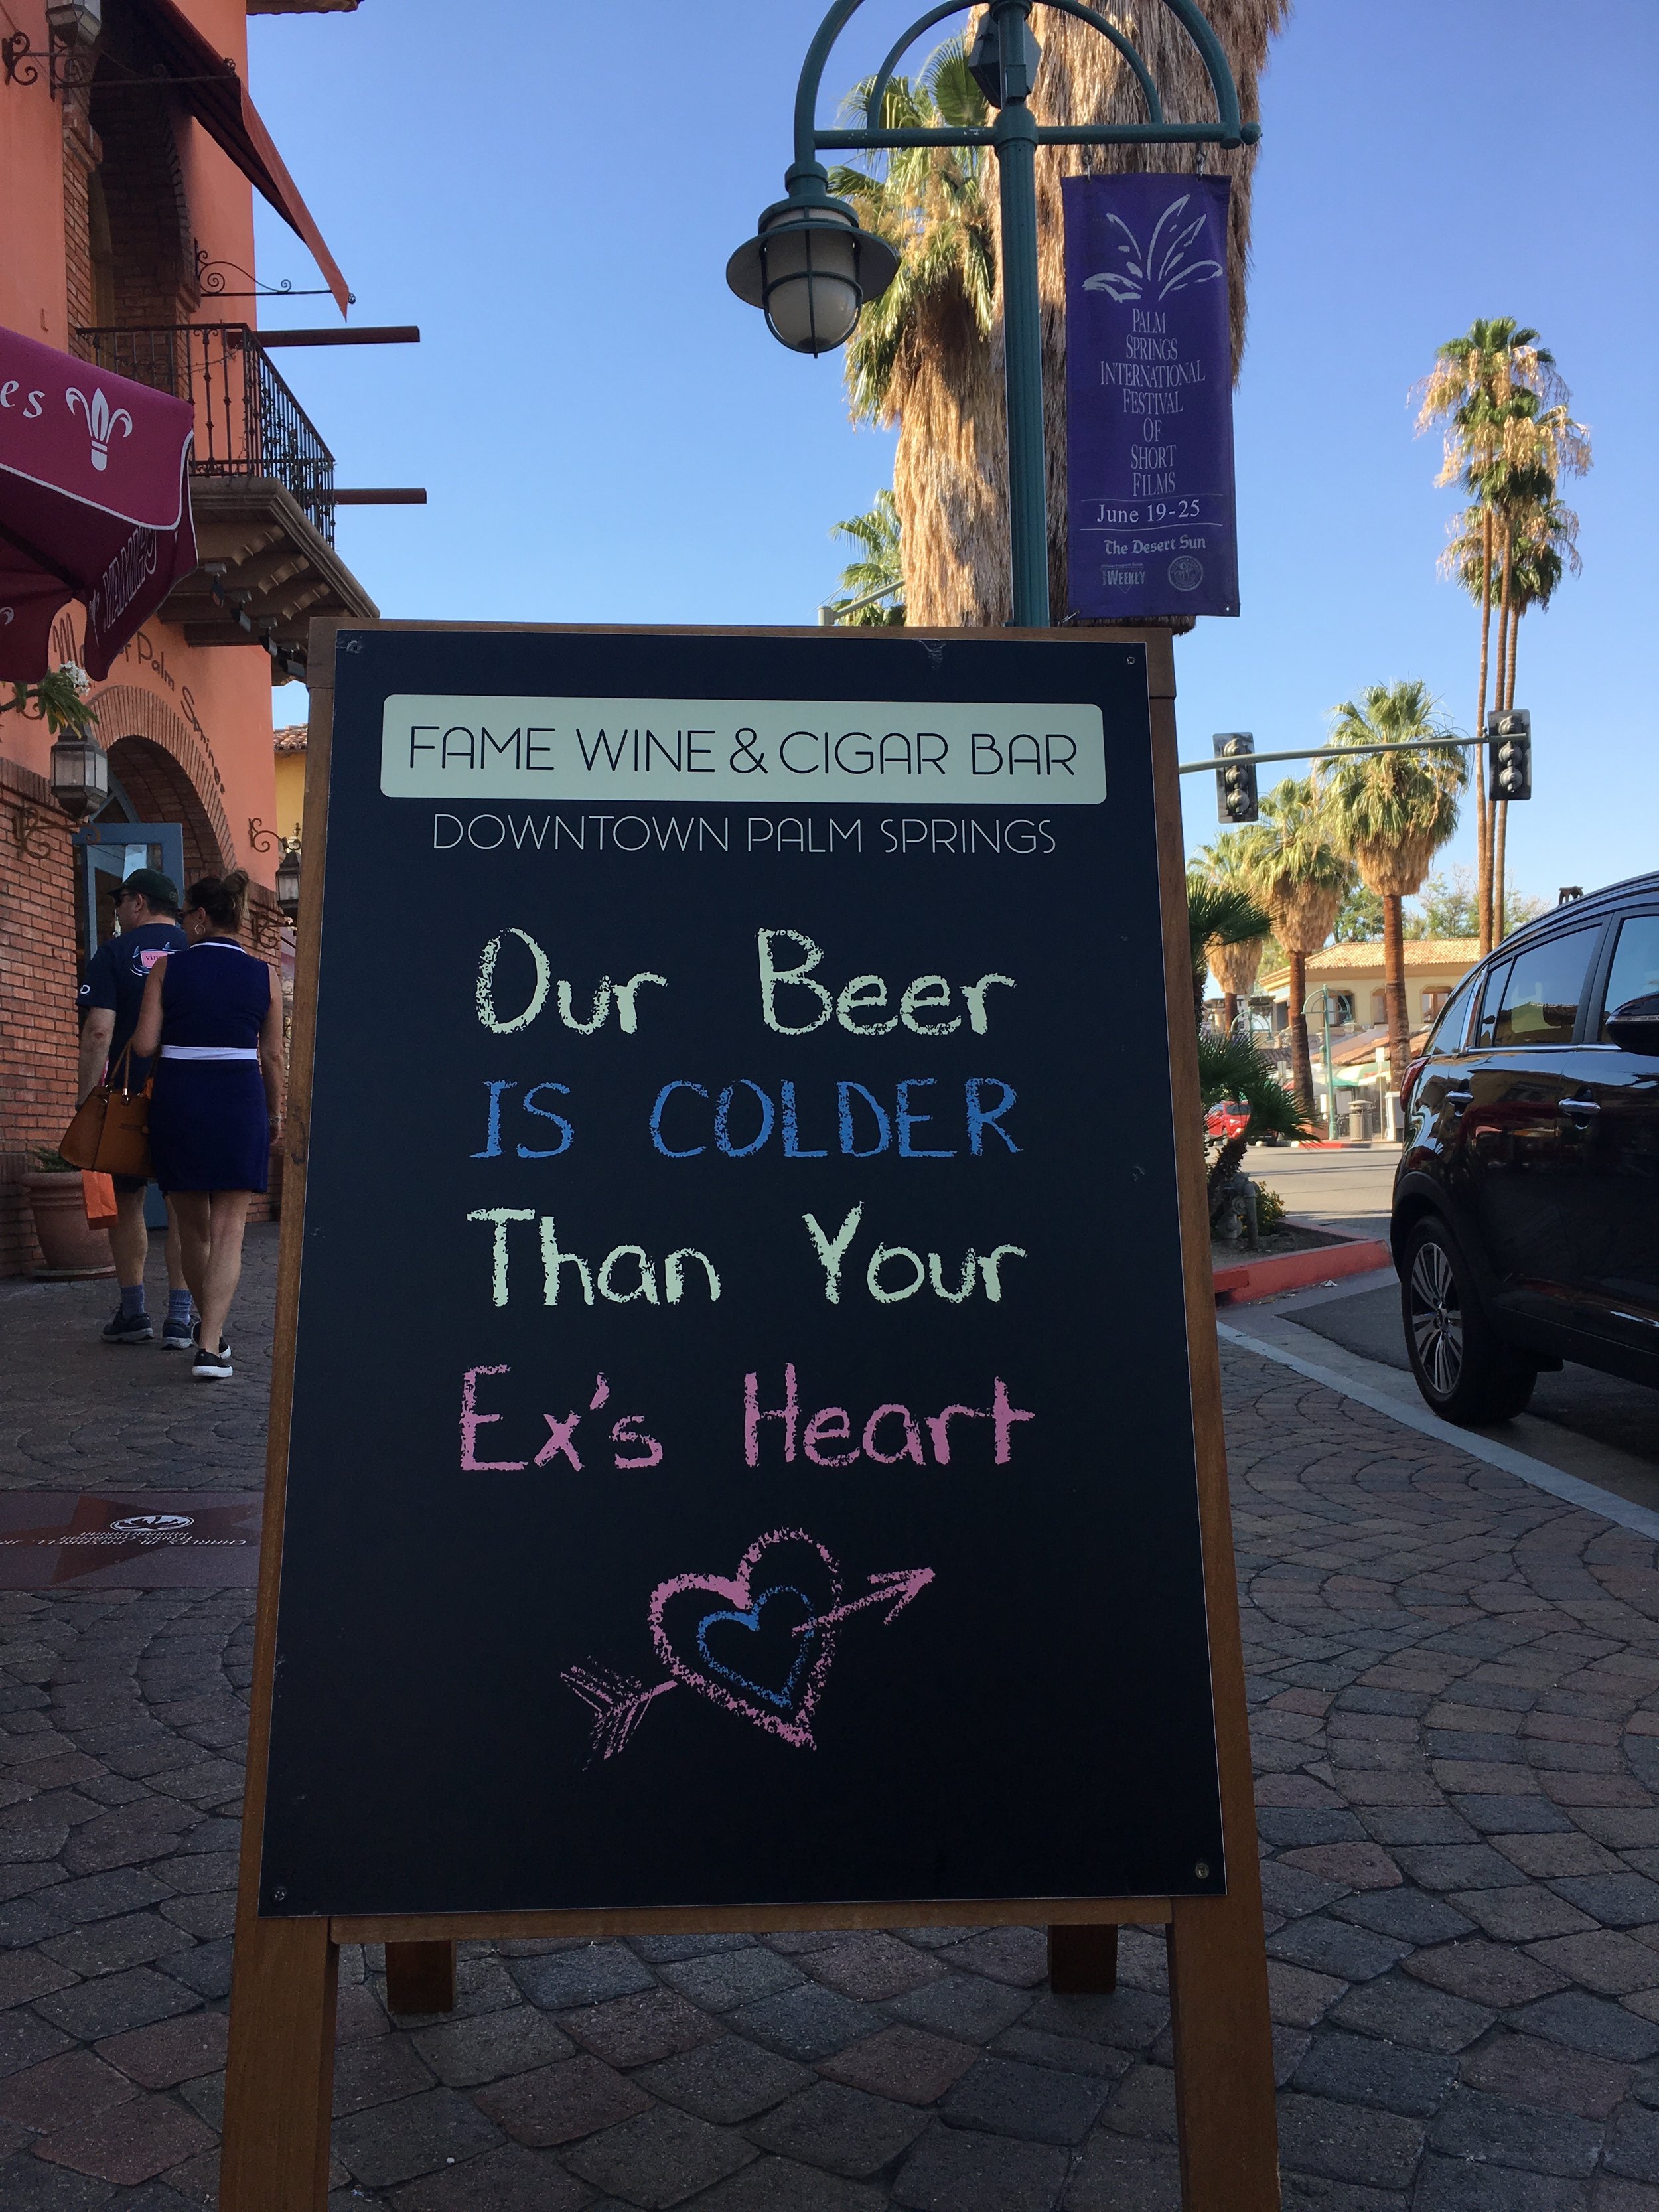 es
PALM
SPRINGS
INTERNATIONAL
FESTIVAL
OF
SHORT
FILMS
June 19-25
The Desert Sun
WEEKLY
of Palm Springs
FAME WINE & CIGAR BAR
DOWNTOWN PALM SPRINGS
Our Beer
IS COLDER
Than Your
Ex's Heart